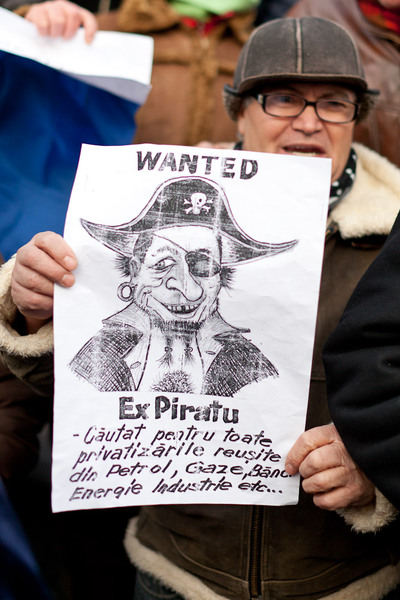 WANTED
Ex Piratu
- Căutat pentru toate
privatizările reușite
din Petrol, Gaze, Bănci
Energie Industrie etc...